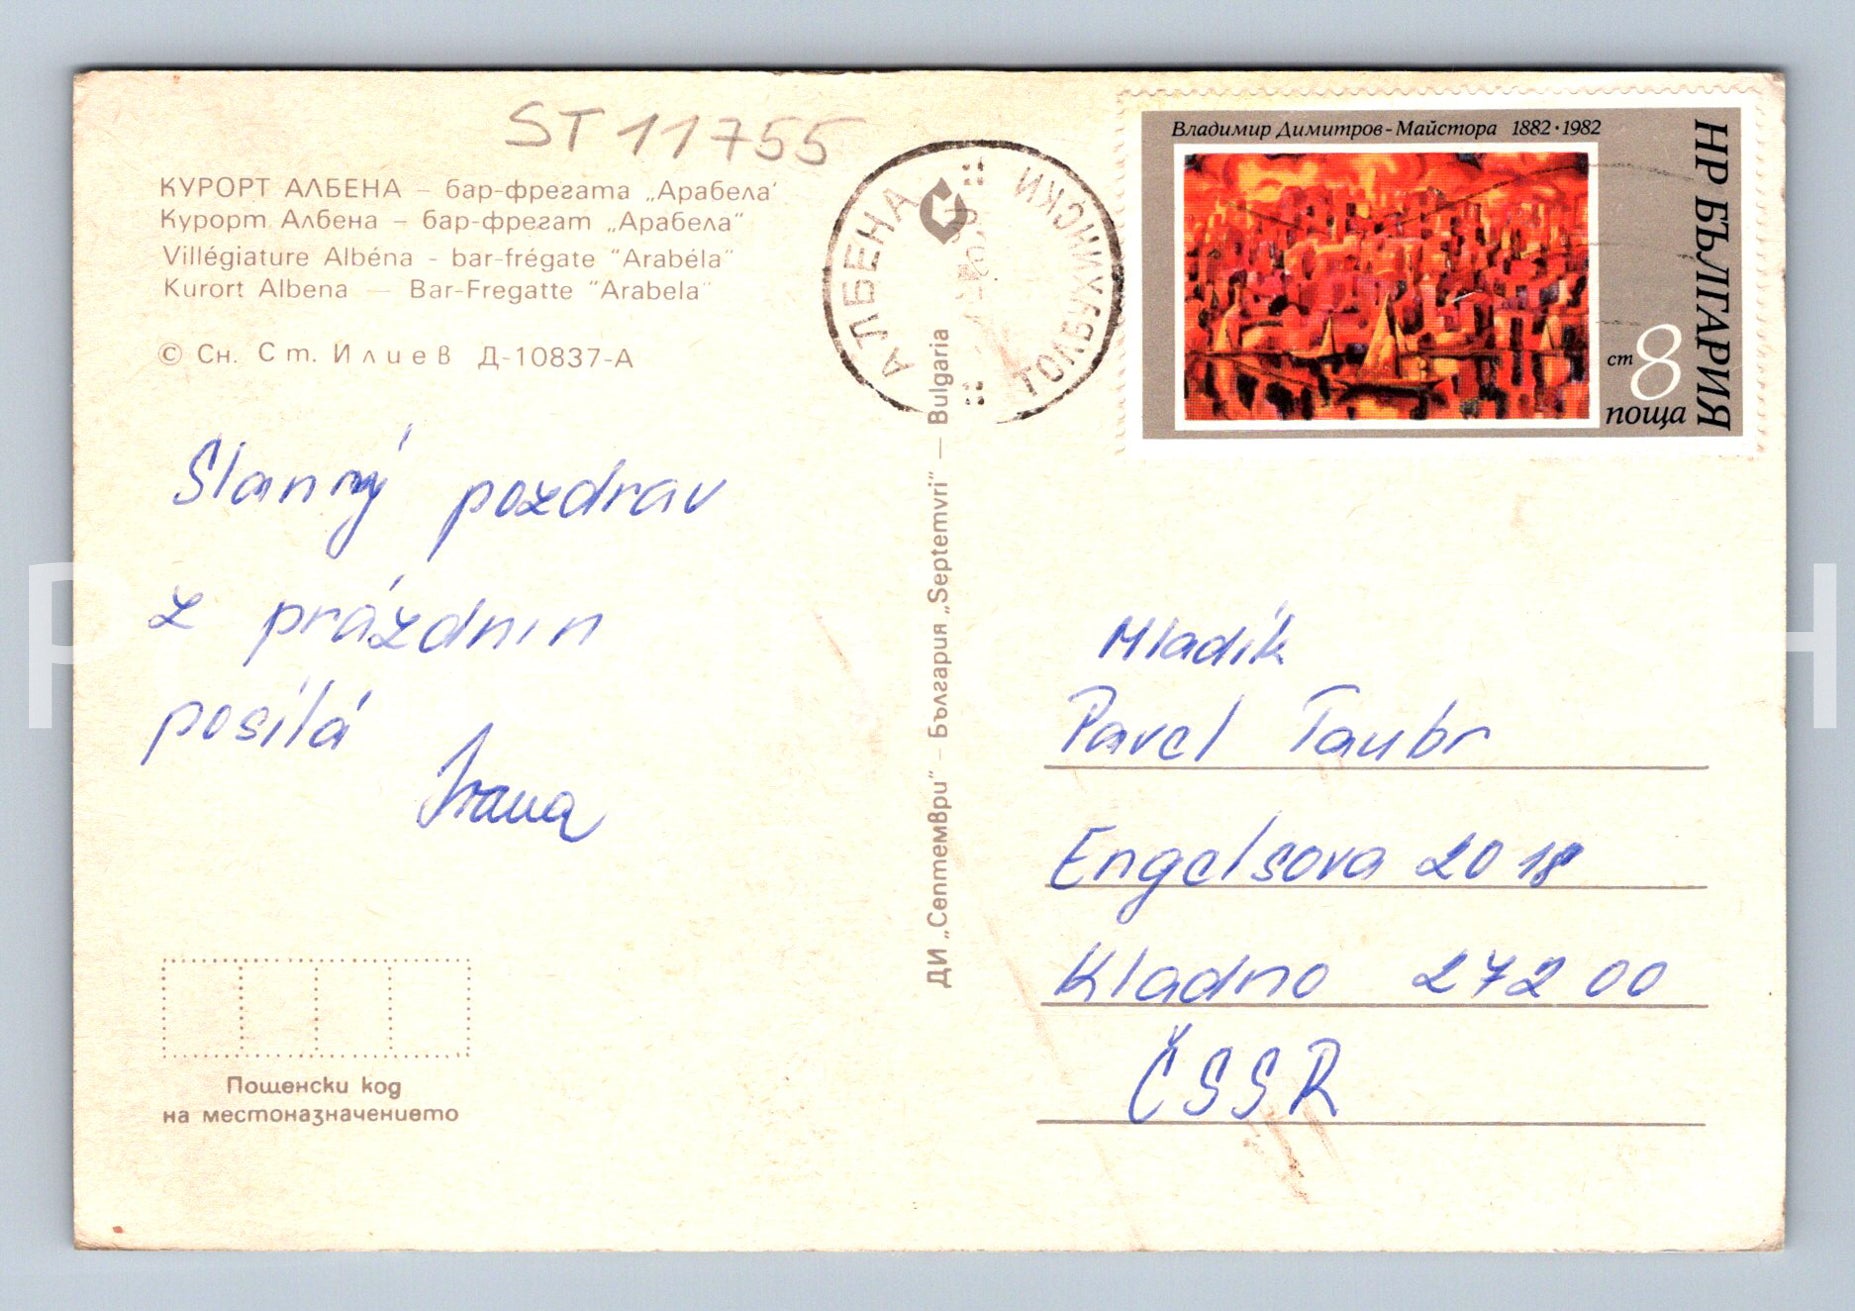 ST 11755
КУРОРТ АЛБЕНА – бар-фрегата „Арабела“
Курорт Албена – бар-фрегат „Арабела“
Villégiature Albéna - bar-frégate "Arabéla"
Kurort Albena — Bar-Fregatte "Arabela"
© Сн. Ст. Илиев Д-10837-А
Slanný pozdrav
z prázdnin
posílá
Ivana
Пощенски код
на местоназначението
ДИ „Септември“ – България „Septemvri“ — Bulgaria
АЛБЕНА
ТОЛБУХИНСКИ
Владимир Димитров-Майстора 1882·1982
НР БЪЛГАРИЯ
ст 8
поща
Mladík
Pavel Taubr
Engelsova 2018
Kladno 272 00
ČSSR